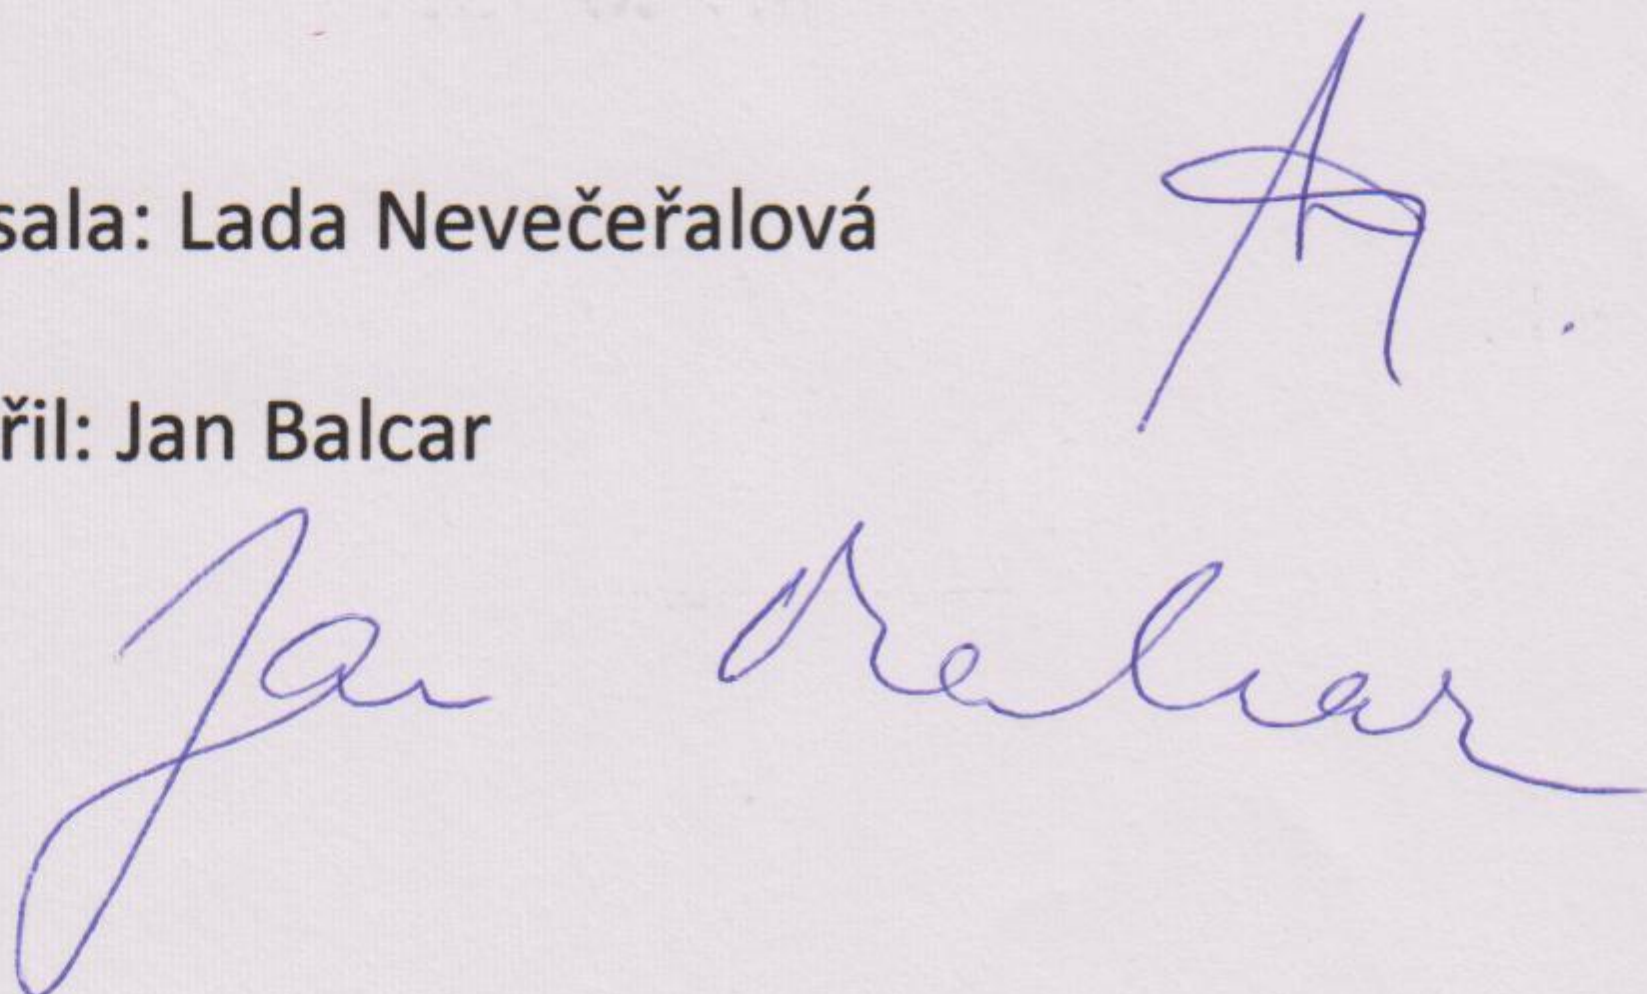 sala: Lada Nevečeřalová
řil: Jan Balcar
Jan Balcar